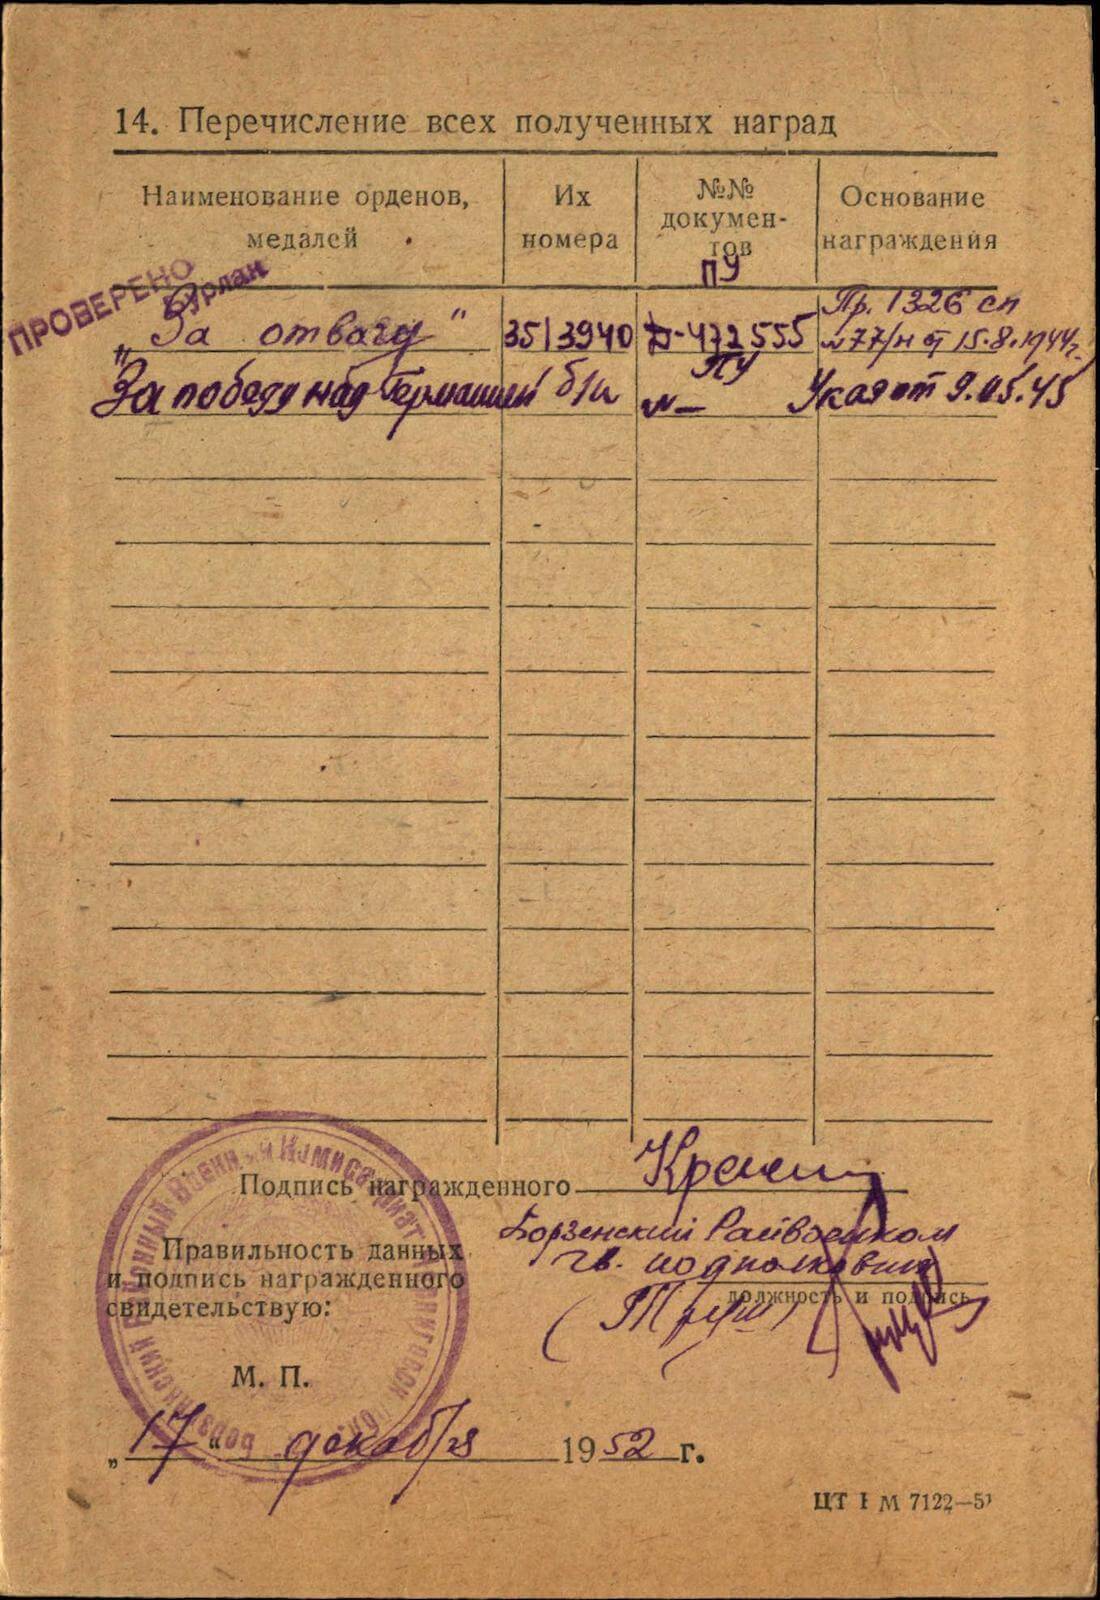 14. Перечисление всех полученных наград
Наименование орденов, медалей
Их номера
№№ документов
Основание награждения
ПУ
ПРОВЕРЕНО
Бурлак
„За отвагу" 3513940 Д-472555 Пр. 1326 сп
№77/н от 15.8.1944г.
ПУ
"За победу над Германией" б/н № — Указ от 9.05.45
Подпись награжденного
Борзенский Райвоенком
Правильность данных
и подпись награжденного
свидетельствую:
гв. подполковник
должность и подпись
М. П.
„17" декабря 1952 г.
Борзенский Районный Военный Комиссариат
ЦТ М 7122—51